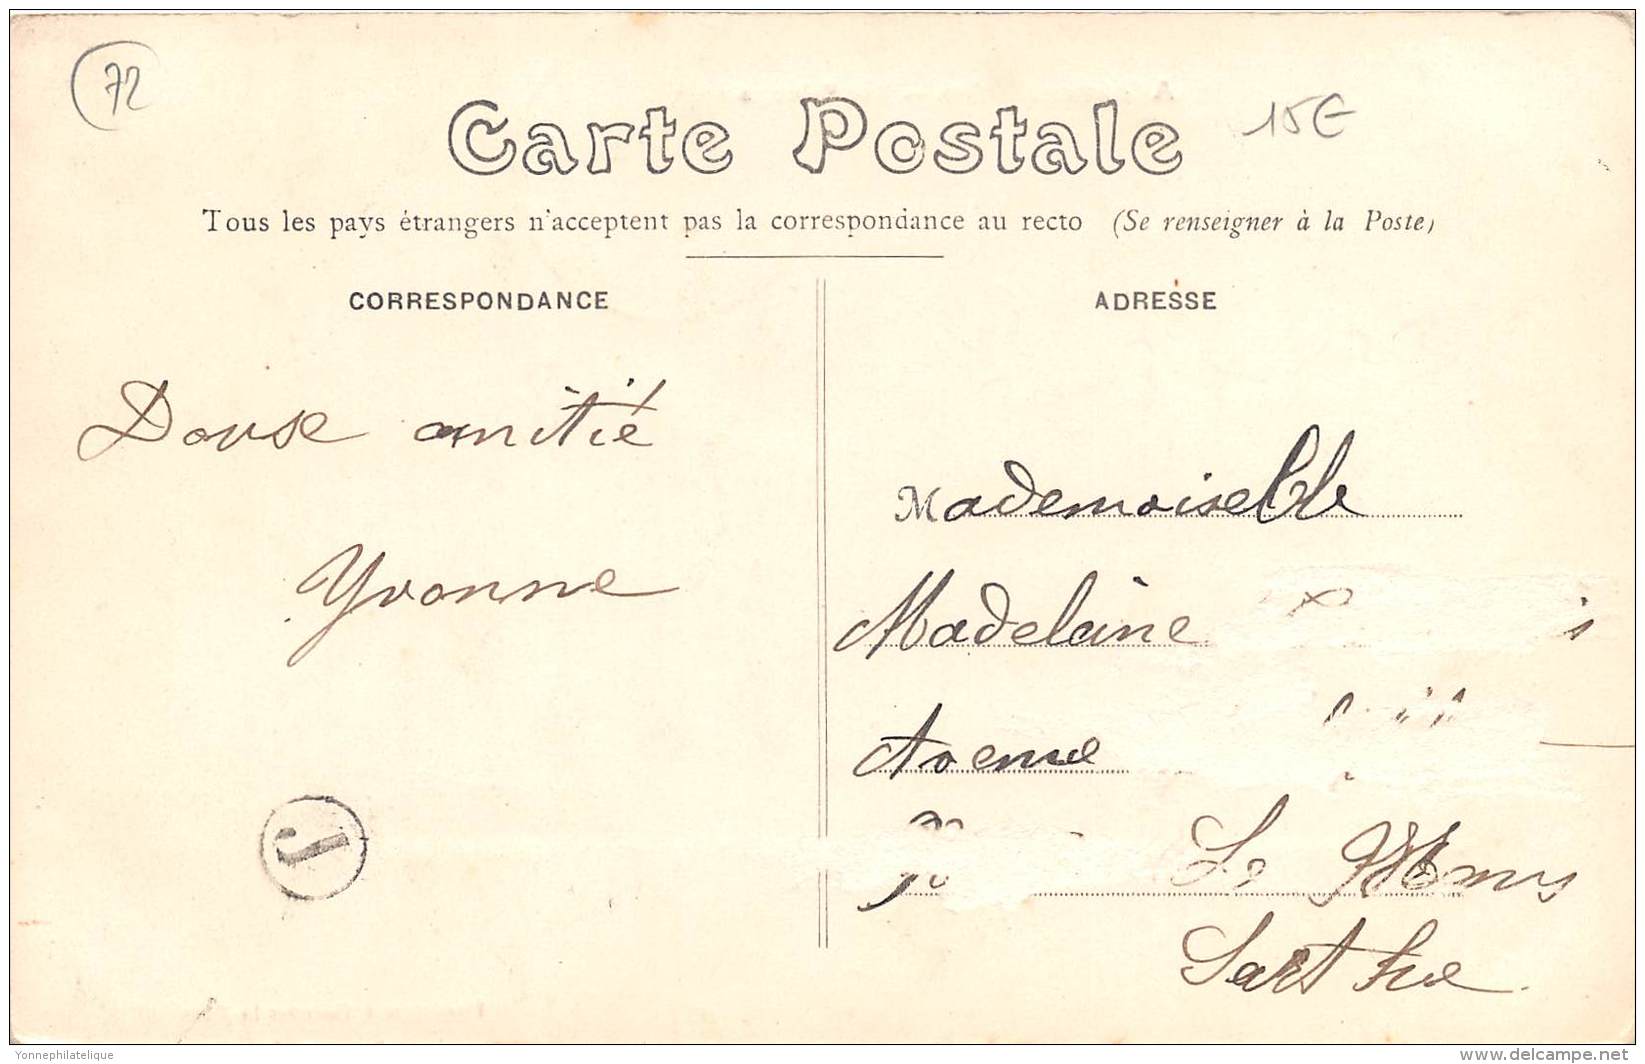 72
Carte Postale
15€
Tous les pays étrangers n'acceptent pas la correspondance au recto (Se renseigner à la Poste)
CORRESPONDANCE
ADRESSE
Douse amitié
Yvonne
J
Mademoiselle
Madeleine
Avenue
Le Mans
Sarthe
Yonnephilatelique
delcampe.net